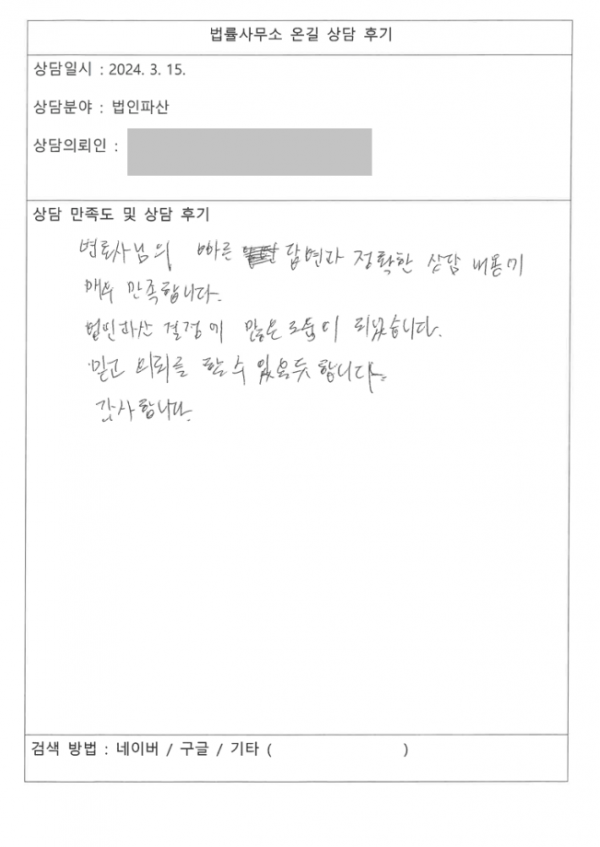 법률사무소 온길 상담 후기
상담일시 : 2024. 3. 15.
상담분야 : 법인파산
상담의뢰인 :
상담 만족도 및 상담 후기
변호사님의 빠른 답변과 정확한 상담 내용에
매우 만족합니다.
법인파산 결정에 많은 도움이 되었습니다.
믿고 의뢰를 할 수 있을듯 합니다.
감사합니다.
검색 방법 : 네이버 / 구글 / 기타 ( )